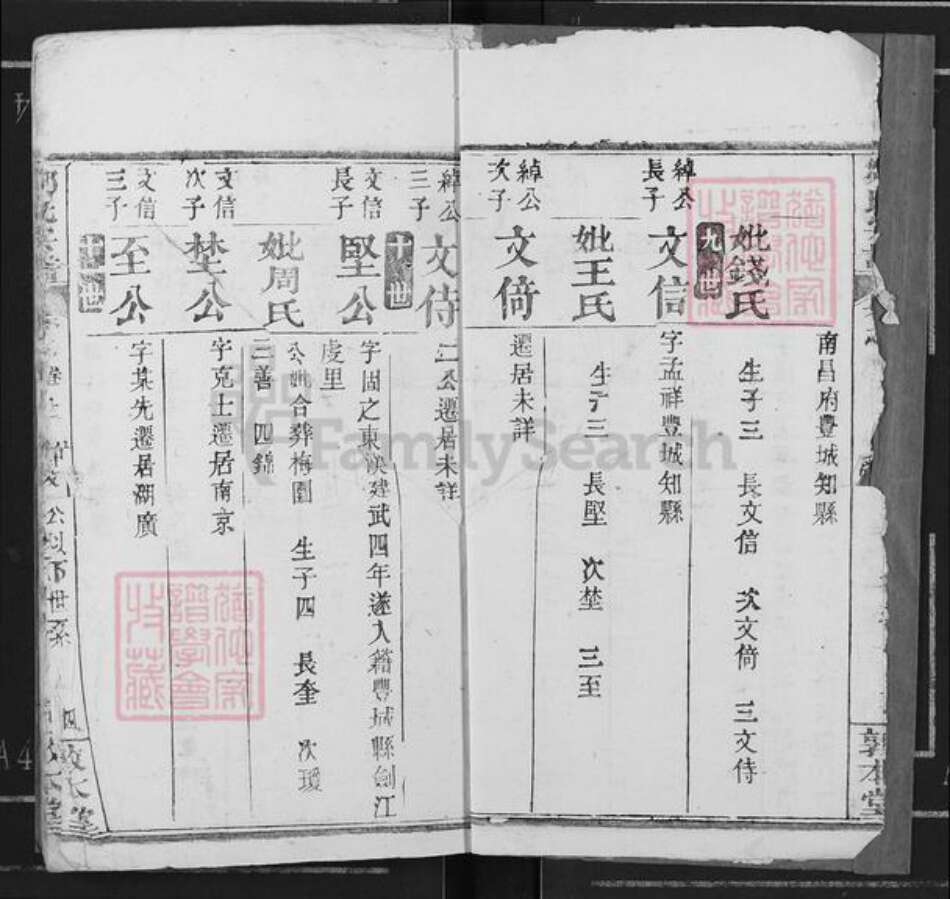 南昌府豐城知縣
妣錢氏
生子三 長文信 次文倚 三文侍
九世
綽公長子
文信
字孟祥豐城知縣
妣王氏
生子三 長堅 次埜 三至
綽公次子
文倚
遷居未詳
綽公三子
文侍
二公遷居未詳
十世
文信長子
堅公
字固之東漢建武四年遂入籍豐城縣劍江
虔里
妣周氏
公妣合葬梅園 生子四 長奎 次瓊
三善 四錦
文信次子
埜公
字克士遷居南京
文信三子
至公
字某先遷居湖廣
公以下世系
四
敦本堂
FamilySearch
譜學會
收藏